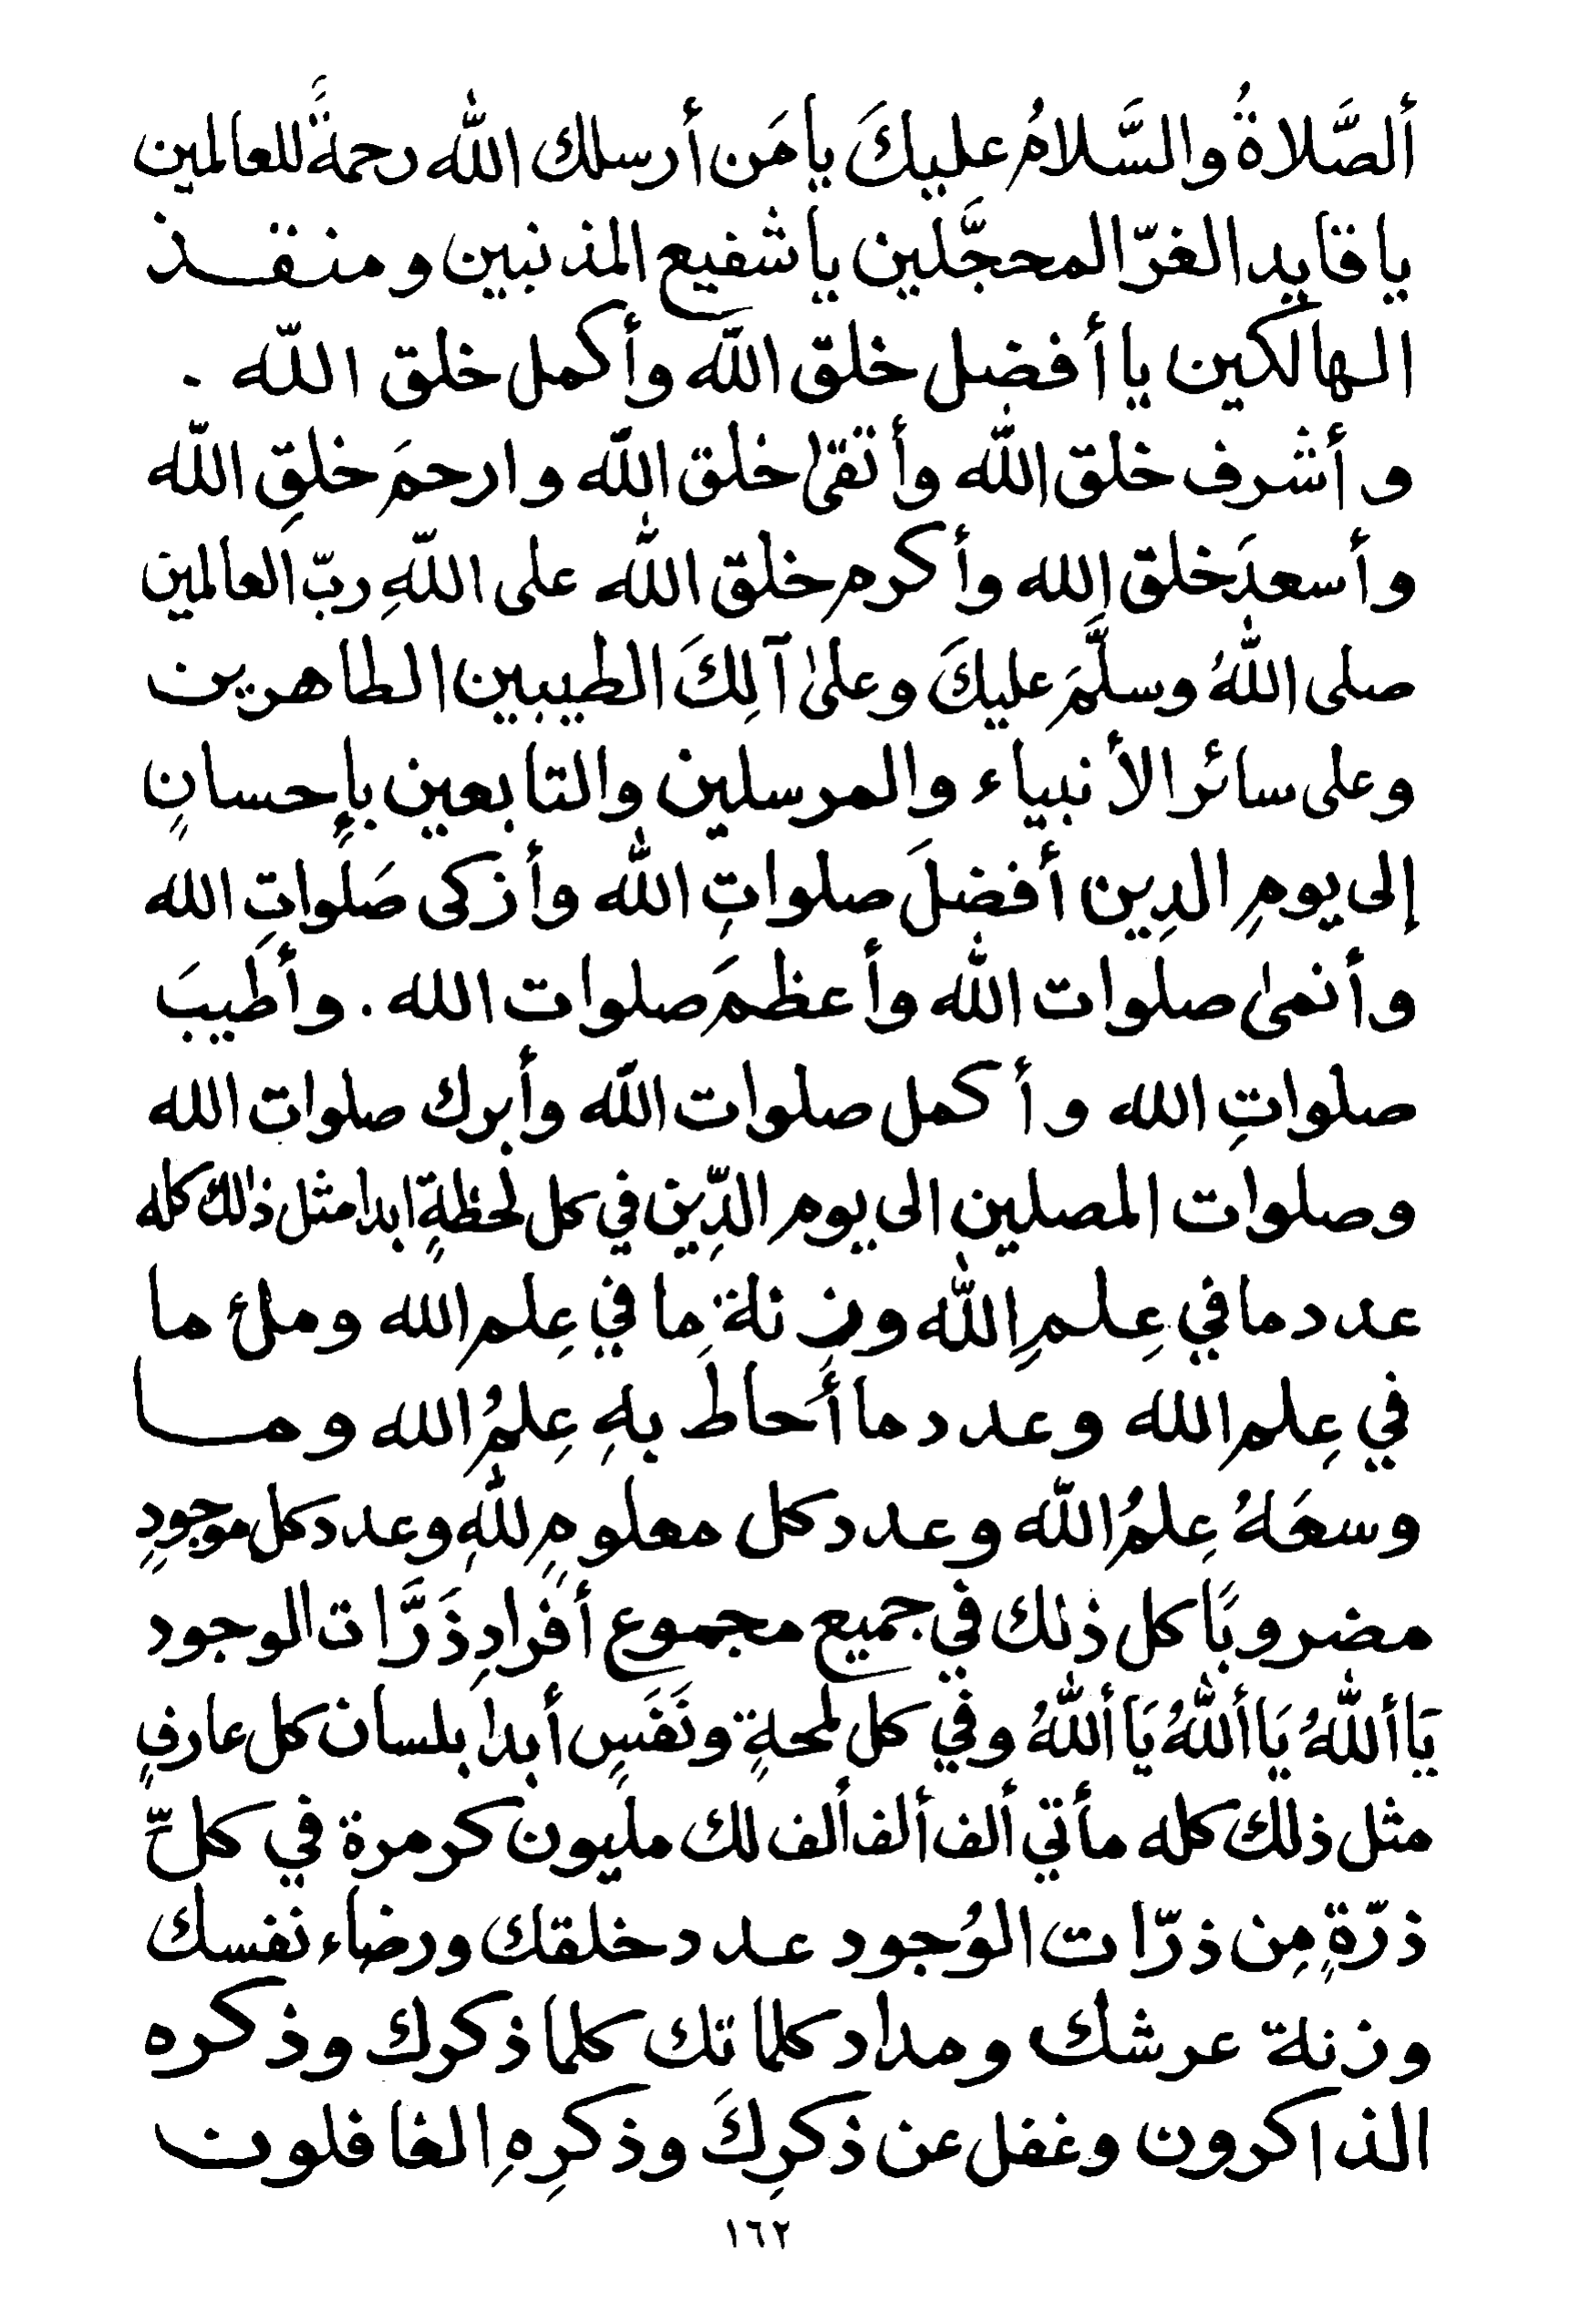 ألصَّلاةُ والسَّلامُ عليكَ يا مَن أرسلك الله رحمةً للعالمين
يا قايد الغرّ المحجَّلين يا شفيع المذنبين ومنقذ
الهالكين يا أفضل خلق الله وأكمل خلق الله .
وأشرف خلق الله وأتقىٰ خلق الله وارحمَ خلقِ الله
وأسعدَ خلق الله وأكرم خلق الله على اللهِ ربّ العالمين
صلى اللهُ وسلَّمَ عليكَ وعلىٰ آلِكَ الطيبين الطاهرين
وعلى سائر الأنبياء والمرسلين والتابعين بإِحسانٍ
إلى يومِ الدِين أفضلَ صلواتِ الله وأزكى صَلواتِ الله
وأنمىٰ صلوات الله وأعظمَ صلوات الله . وأطيبَ
صلواتِ الله وأكمل صلوات الله وأبرك صلوات الله
وصلوات المصلين الى يوم الدِّين في كل لحظةٍ ابدا مثل ذالك كله
عدد ما في عِلمِ الله وزِنة ما في عِلم الله وملئ ما
في عِلم الله وعدد ما أَحاطَ بهِ عِلمُ الله وما
وسعَهُ عِلمُ الله وعدد كل معلومٍ للهِ وعدد كل موجودٍ
مضروبًا كل ذلك في جميع مجموع أفرادِ ذَرَّات الوجود
يَا أللهُ يَا أللهُ يَا أللهُ وفي كل لمحةٍ ونَفَسٍ أبدا بلسان كل عارفٍ
مثل ذلك كله مأتي ألف ألف ألف لك مليون كر مرة في كلّ
ذرّةٍ مِن ذرّات الوُجود عدد خلقك ورضاء نفسك
وزنة عرشك ومداد كلماتك كلما ذكرك وذكره
الذاكرون وغفل عن ذكرِكَ وذكرِهِ الغافلون
١٦٢